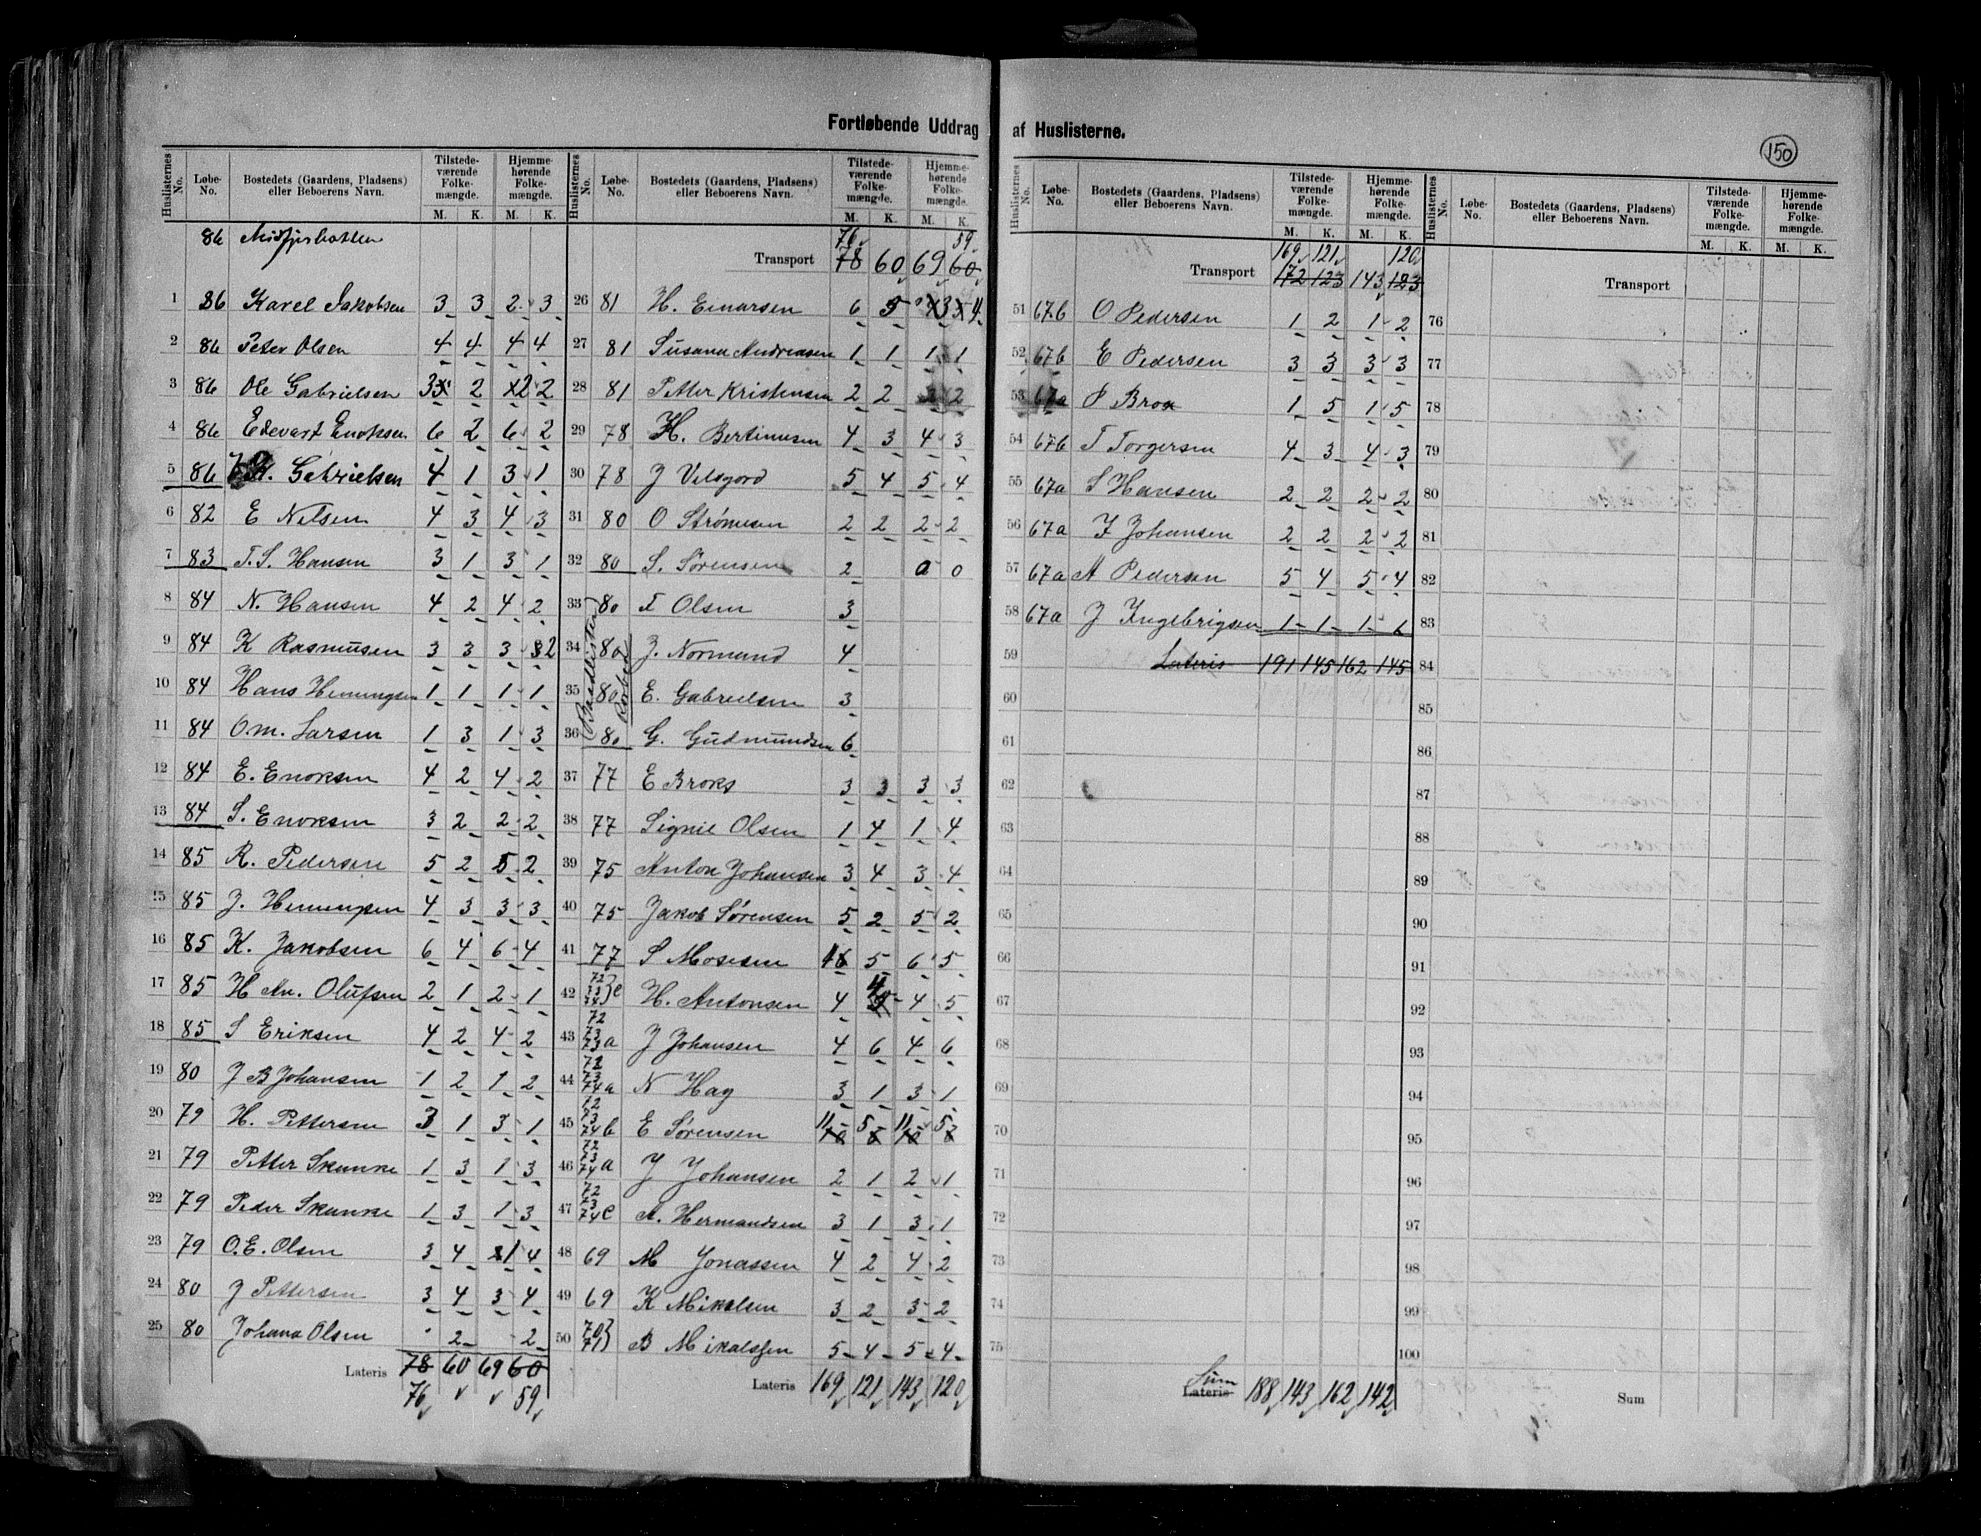 Fortløbende Uddrag af Huslisterne.
150
Huslisternes No. Løbe-No. Bostedets (Gaardens, Pladsens) eller Beboerens Navn. Tilstedeværende Folkemængde. M. K. Hjemmehørende Folkemængde. M. K.
86
1 86 Karel Jakobsen 3 3 2 3
2 86 Peter Olsen 4 4 4 4
3 86 Ole Gabrielsen 3 2 2 2
4 86 Edevart Enoksen 6 2 6 2
5 86 Gabrielsen 4 1 3 1
6 82 E Nelsen 4 3 4 3
7 83 T. S. Hansen 3 1 3 1
8 84 N. Hansen 4 2 4 2
9 84 K Rasmusen 3 3 3 2
10 84 Hans Hemingsen 1 1 1 1
11 84 O. m. Larsen 1 3 1 3
12 84 E. Enoksen 4 2 4 2
13 84 S. Enoksen 3 2 2 2
14 85 R. Pedersen 5 2 5 2
15 85 J. Hemingsen 4 3 3 3
16 85 K. Jakobsen 6 4 6 4
17 85 H An. Olufsen 2 1 2 1
18 85 S Eriksen 4 2 4 2
19 80 J B Johansen 1 2 1 2
20 79 H. Pettersen 3 1 3 1
21 79 Petter Skanke 1 3 1 3
22 79 Peder Skanke 1 3 1 3
23 79 O. E. Olsen 3 4 1 4
24 80 J Pettersen 3 4 3 4
25 80 Johana Olsen 2 2
Lateris 78 60 69 60
76 59
Huslisternes No. Løbe-No. Bostedets (Gaardens, Pladsens) eller Beboerens Navn. Tilstedeværende Folkemængde. M. K. Hjemmehørende Folkemængde. M. K.
76 59
Transport 78 60 69 60
26 81 H. Einarsen 6 5 3 4
27 81 Susana Andreasen 1 1 1 1
28 81 Petter Kristensen 2 2 2 2
29 78 H. Bertinusen 4 3 4 3
30 78 J Vilsgord 5 4 5 4
31 80 O Strømesen 2 2 2 2
32 80 S. Sørensen 2 0 0
33 80 T Olsen 3
34 80 J. Normand 4
35 80 E. Gabrielsen 3
36 80 G. Gudmundsen 6
37 77 E Broks 3 3 3 3
38 77 Signie Olsen 1 4 1 4
39 75 Anton Johansen 3 4 3 4
40 75 Jakob Sørensen 5 2 5 2
41 77 S Mosesen 5 6 5
42 72 73 74 e H. Antonsen 4 4 4 5
43 72 73 73 a J Johansen 4 6 4 6
44 72 73 74 a N Hag 3 1 3 1
45 72 73 74 b E Sørensen 11 5 11 5
46 72 73 74 a J Johansen 2 1 2 1
47 72 73 74 e A. Hermandsen 3 1 3 1
48 69 M Jonassen 4 2 4 2
49 69 K Mikalsen 3 2 3 2
50 70 71 B Mikalsen 5 4 5 4
Lateris 169 121 143 120
Huslisternes No. Løbe-No. Bostedets (Gaardens, Pladsens) eller Beboerens Navn. Tilstedeværende Folkemængde. M. K. Hjemmehørende Folkemængde. M. K.
169 121 120
Transport 172 123 143 123
51 67b O Pedersen 1 2 1 2
52 67b E Pedersen 3 3 3 3
53 67a P Brox 1 5 1 5
54 67b T Torgersen 4 3 4 3
55 67a S Hansen 2 2 2 2
56 67a J Johansen 2 2 2 2
57 67a A Pedersen 5 4 5 4
58 67a J Ingebrigsen 1 1 1 1
59 Lateris 191 145 162 145
60
61
62
63
64
65
66
67
68
69
70
71
72
73
74
75
Sum
Lateris 188 143 162 142
Huslisternes No. Løbe-No. Bostedets (Gaardens, Pladsens) eller Beboerens Navn. Tilstedeværende Folkemængde. M. K. Hjemmehørende Folkemængde. M. K.
Transport
76
77
78
79
80
81
82
83
84
85
86
87
88
89
90
91
92
93
94
95
96
97
98
99
100
Sum